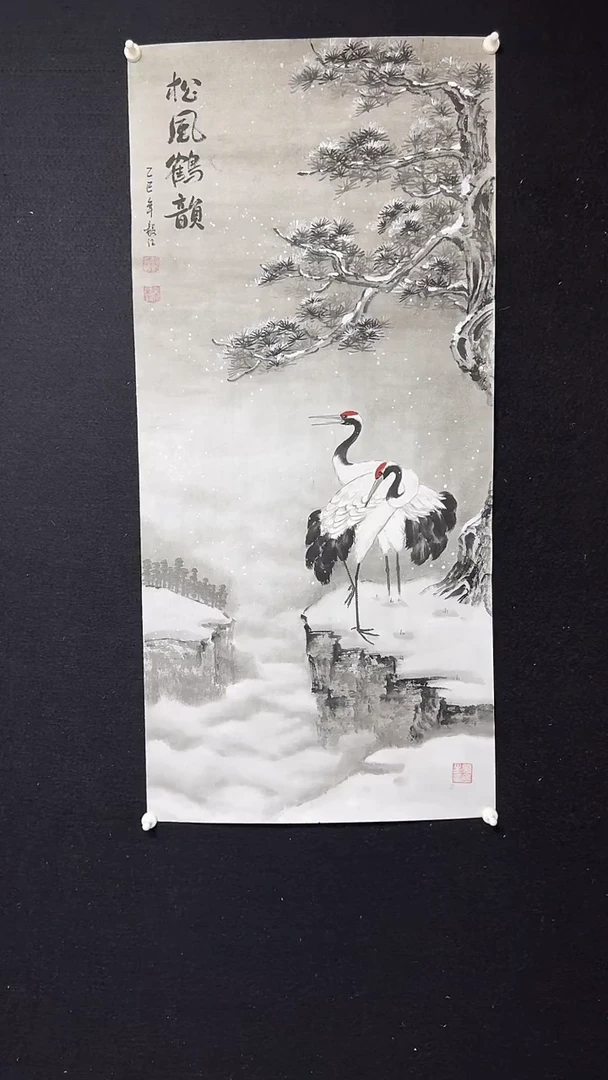 松風鶴韻
乙巳年